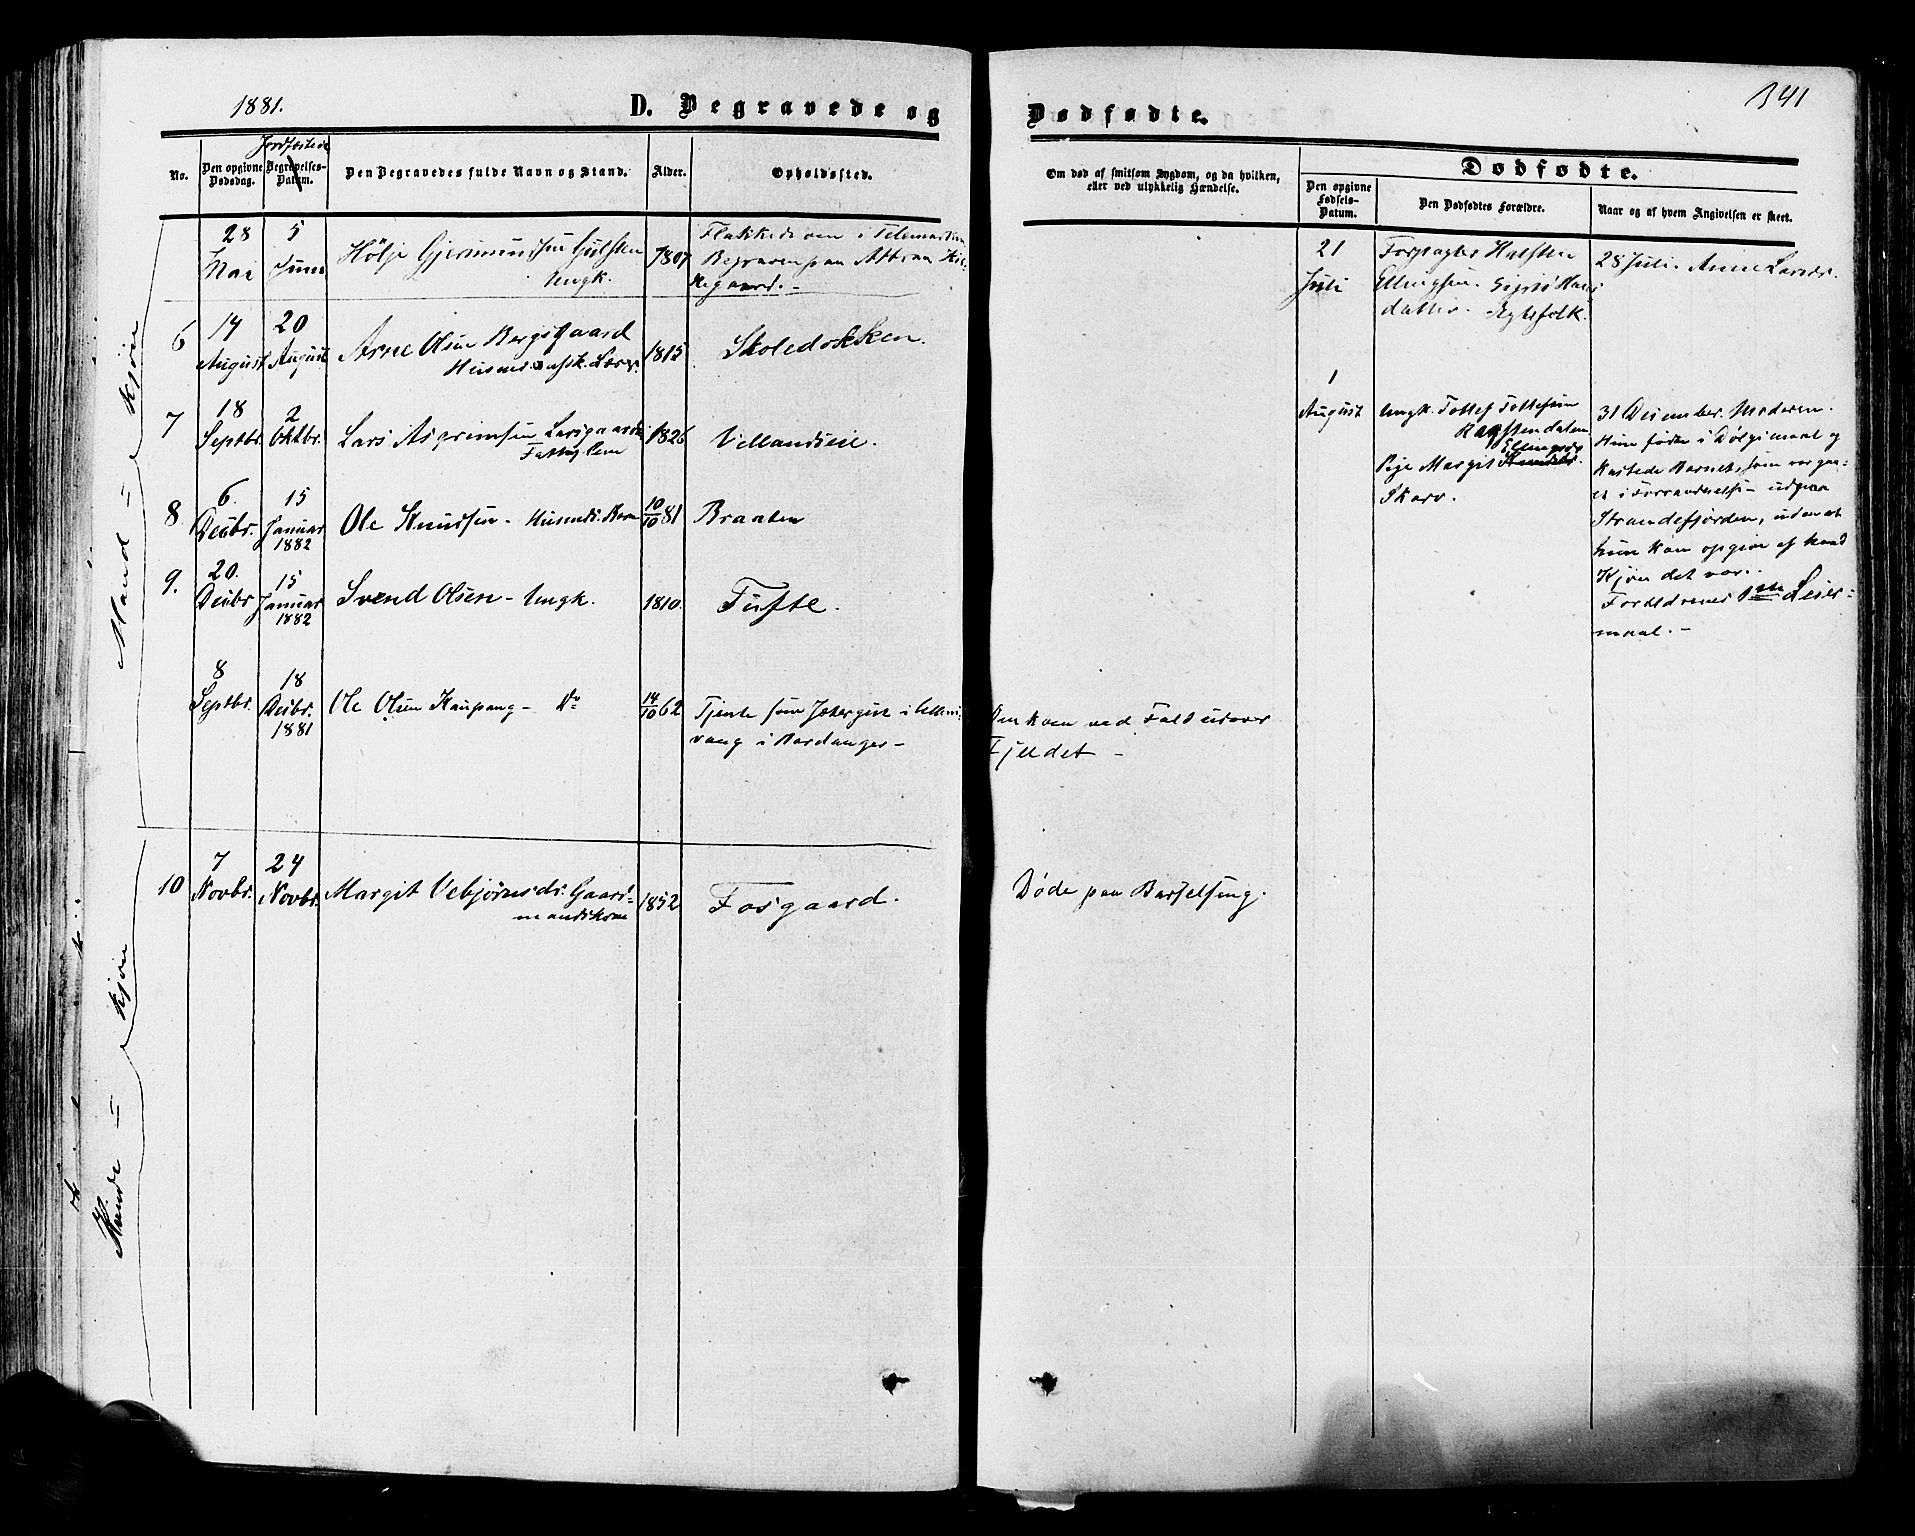 1881.
D. Begravede og
Dødfødte.
341
No.
Den opgivne Dødsdag.
Jordfæstede
Begravelses-Datum.
Den Begravedes fulde Navn og Stand.
Alder.
Opholdssted.
Om død af smitsom Sygdom, og da hvilken,
eller ved ulykkelig Hændelse.
Dødfødte.
Den opgivne Fødsels-Datum.
Den Dødfødtes Forældre.
Naar og af hvem Angivelsen er skeet.
Mand - kjøn
28 Mai
5 Juni
Hølje Gjermundsen Gulsten
Ungk.
1807
Flakkede om i Telemarken
Begraven paa Attraa Kir-
kegaard. -
6
14 August
20 August
Arne Olsen Bergsgaard
Husmd. Læver.
1815
Skoledokken.
7
18 Septbr.
2 Oktbr.
Lars Asgrimsen Larsgaard
Fattiglem
1826
Villandseie.
8
6. Decbr.
15 Januar 1882
Ole Knudsen - Husmds. Barn
10/10 81
Braaten
9.
20. Decbr
15 Januar 1882
Svend Olsen - Ungk.
1810.
Tufte.
8 Septbr.
18 Decbr. 1881
Ole Olsen Kaupang - Do
14/10 62
Tjente som Jætergut i Ullens-
vang i Hardanger -
Omkom ved Fald udover
Fjeldet -
Kvinde - kjøn
10
7 Novbr.
24 Novbr.
Margit Vebjørnsdr. Gaard-
mandskone
1852
Fosgaard.
Døde paa Barselseng.
21 Juli
Forpagter Halsten
Ellingsen. Sigrid Hans
datter. Egtefolk.
28 Juli. Anne Larsdr.
1 August
Ungk. Tollef Tollefsen
Ragstendalen
Ellingsdr
Pige Margit Knudsdr.
Skarv.
31 December. Moderen.
Hun fødte i Dølgsmaal og
kastede Barnet, som var gaa-
et i Forraadnelse - udpaa
Strandefjorden, uden at
hun kan opgive af hvad
Kjøn det var.
Forældrenes 1ste Leier-
maal. -